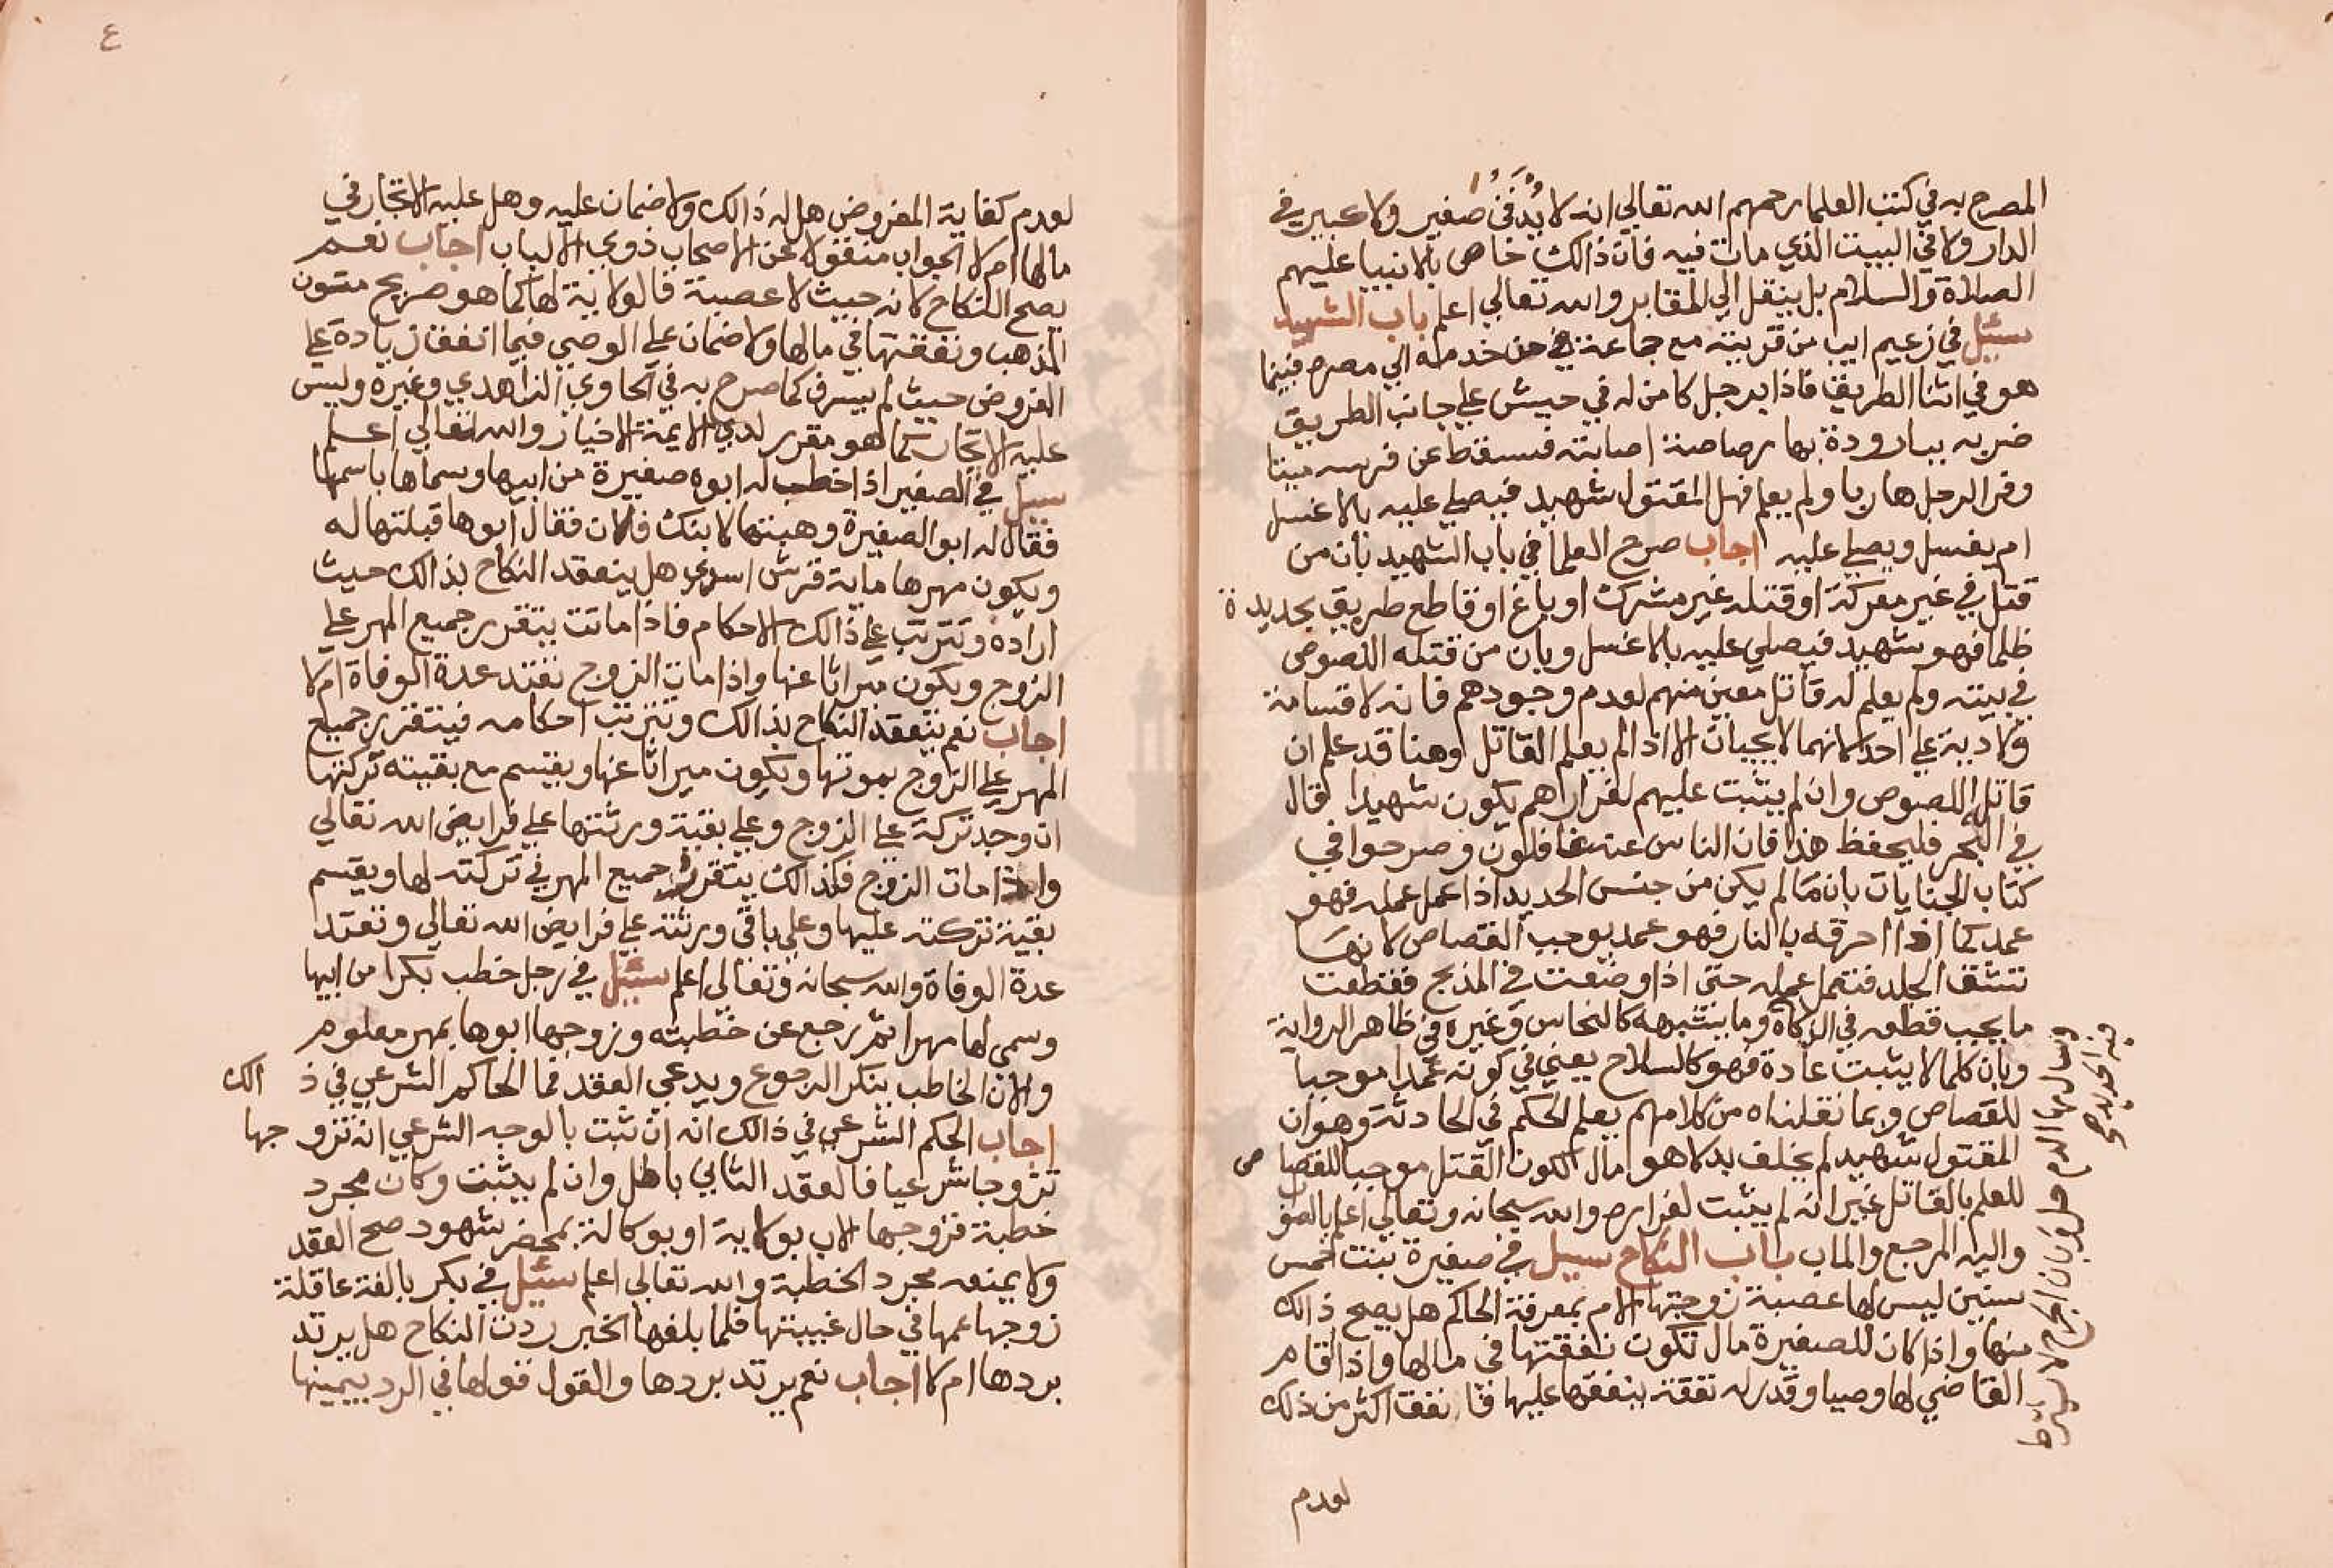 المصرح به في كتب العلما رحمهم الله تعالي انه لا يدفن صغير ولا كبير في
الدار ولا في البيت الذي مات فيه فان ذالك خاص بالانبيا عليهم
الصلاة والسلام بل ينقل الي المقابر والله تعالي اعلم باب الشهيد
سئل في زعيم ايب من قريته مع جماعة في خدمله الي مصره فبينما
هو في اثنا الطريق فاذا برجل كامن له في حيش علي جانب الطريق
ضربه ببارودة بها رصاصة اصابته فسقط عن فرسه ميتا
وفر الرجل هاربا ولم يعلم فهل المقتول شهيد فيصلي عليه بلا غسل
ام يغسل ويصلي عليه اجاب صرح العلما في باب الشهيد بان من
قتل في غير معركة او قتله غير مشرك او باغ او قاطع طريق بحديدة
ظلما فهو شهيد فيصلي عليه بلا غسل وبان من قتله اللصوص
في بيته ولم يعلم له قاتل معين منهم لعدم وجودهم فانه لا قسامة
ولا دية علي احد لانهما لا يجبان الا اذا لم يعلم القاتل وهنا قد علم ان
قاتله اللصوص وان لم يثبت عليهم لفرارهم يكون شهيدا قال
في البحر فليحفظ هذا فان الناس عنه غافلون وصرحوا في
كتاب الجنايات بان ما لم يكن من جنس الحديد اذا عمل عمله فهو
عمد كما اذا احرقه بالنار فهو عمد يوجب القصاص لانها
تشق الجلد فتعمل عمله حتي اذا وضعت في المذبح فقطعت
ما يجب قطعه في الزكاة وما يشبهه كالنحاس وغيره في ظاهر الرواية
وبان كلما لا يثبت عادة فهو كالسلاح يعني في كونه عمدا موجبا
للقصاص وبما نقلناه من كلامهم يعلم الحكم في الحادثة وهو ان
المقتول شهيد لم يخلف بدلا هو مال لكون القتل موجبا للقصاص
للعلم بالقاتل غير انه لم يثبت لفراره والله سبحانه وتعالي اعلم بالصواب
واليه المرجع والماب باب النكاح سيل في صغيرة بنت خمس
سنين ليس لها عصبة زوجتها الام بمعرفة الحاكم هل يصح ذالك
منها واذا كان للصغيرة مال تكون نفقتها في مالها واذا اقام
القاضي لها وصيا وقدر له نفقة ينفقها عليها فانفق اكثر من ذلك
لعدم
٤
لعدم كفاية المفروض هل له ذالك ولا ضمان عليه وهل عليه الاتجار في
مالها ام لا الجواب منقولا عن الاصحاب ذوي الالباب اجاب نعم
يصح النكاح لانه حيث لا عصبة فالولاية لها كما هو صريح متون
المذهب ونفقتها في مالها ولا ضمان علي الوصي فيما انفق زيادة علي
الفروض حيث لم يسرف كما صرح به في الحاوي الزاهدي وغيره وليس
عليه الاتجار كما هو مقرر لدي الايمة الاخيار والله تعالي اعلم
سيل في الصغير اذا خطب له ابوه صغيرة من ابيها وسماها باسمها
فقال له ابو الصغيرة وهبتها لابنك فلان فقال ابوها قبلتها له
ويكون مهرها ماية قرش اسدي هل ينعقد النكاح بذالك حيث
اراده وتترتب علي ذالك الاحكام فاذا ماتت يتقرر جميع المهر علي
الزوج ويكون ميراثا عنها واذا مات الزوج تعتد عدة الوفاة ام لا
اجاب نعم ينعقد النكاح بذالك وتترتب احكامه فيتقرر جميع
المهر علي الزوج بموتها ويكون ميراثا عنها ويقسم مع بقية تركتها
ان وجد تركة علي الزوج وعلي بقية ورثتها علي فرايض الله تعالي
واذا مات الزوج فكذالك يتقرر جميع المهر في تركته لها ويقسم
بقية تركته عليها وعلي باقي ورثته علي فرايض الله تعالي وتعتد
عدة الوفاة والله سبحانه وتعالي اعلم سئيل في رجل خطب بكرا من ابيها
وسمي لها مهرا ثم رجع عن خطبته وزوجها ابوها بمهر معلوم
والان الخاطب ينكر الرجوع ويدعي العقد فما الحاكم الشرعي في ذالك
اجاب الحكم الشرعي في ذالك انه ان ثبت بالوجه الشرعي انه تزوجها
تزوجا شرعيا فالعقد الثاني باطل وان لم يثبت وكان مجرد
خطبة فزوجها الاب بولاية او بوكالة بمحضر شهود صح العقد
ولا يمنعه مجرد الخطبة والله تعالي اعلم سئيل في بكر بالغة عاقلة
زوجها عمها في حال غيبتها فلما بلغها الخبر ردت النكاح هل يرتد
بردها ام لا اجاب نعم يرتد بردها والقول قولها في الرد بيمينها